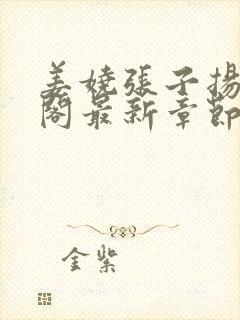 姜嬈張子揚
閣最新章節
金紫